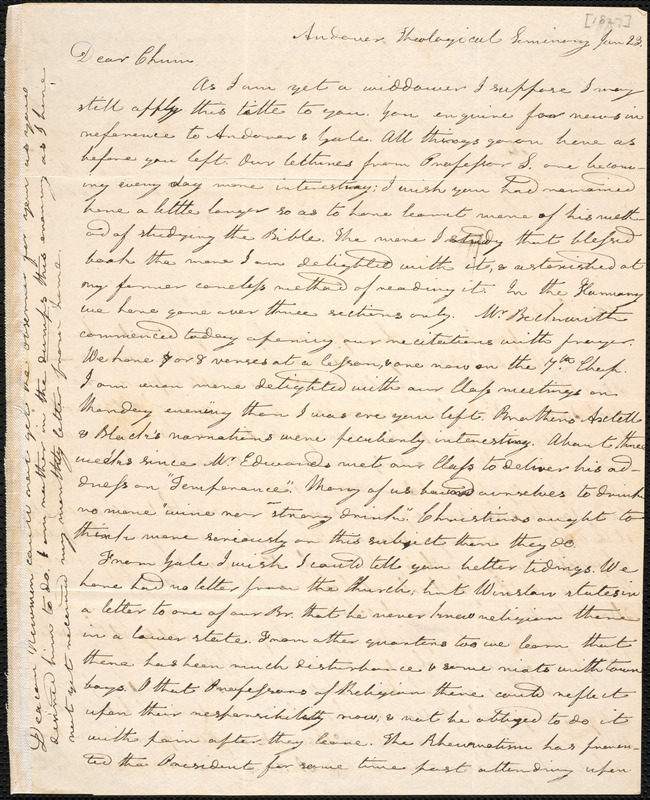 [1827]
Andover Theological Seminary Jan 23.
Dear Chum
As I am yet a widdower I suppose I may
still apply this title to you. You enquire for news in
reference to Andover & Yale. All things go on here as
before you left. Our lectures from Professor S. are becom-
ing every day more interesting; I wish you had remained
here a little longer so as to have learnt more of his meth-
od of studying the Bible. The more I study that blessed
book the more I am delighted with it, & astonished at
my former careless method of reading it. In the Harmony
we have gone over three sections only. Mr Beckwith
commenced today opening our recitations with prayer.
We have 7 or 8 verses at a lesson, & are now on the 7th Chap.
I am even more delighted with our Class meetings on
Monday evening than I was ere you left. Brothers Axtell
& Black's narrations were peculiarly interesting. About three
weeks since Mr Edwards met our Class to deliver his ad-
dress on "Temperance". Many of us bound ourselves to drink
no more "wine nor strong drink". Christians ought to
think more seriously on this subject than they do.
From Yale I wish I could tell you better tidings. We
have had no letter from the Church, but Winslow states in
a letter to one of our Br. that he never knew religion there
in a lower state. From other quarters too we learn that
there has been much disturbance & some riots with town
boys. O that Professors of Religion there could reflect
upon their responsibility now, & not be obliged to do it
with pain after they leave. The Rheumatism has preven-
ted the President for some time past attending upon
Deacon Newman could not get the for you as you
desired him to do. I am rather in the dumps this evening as I have
not yet received my monthly letter from home.